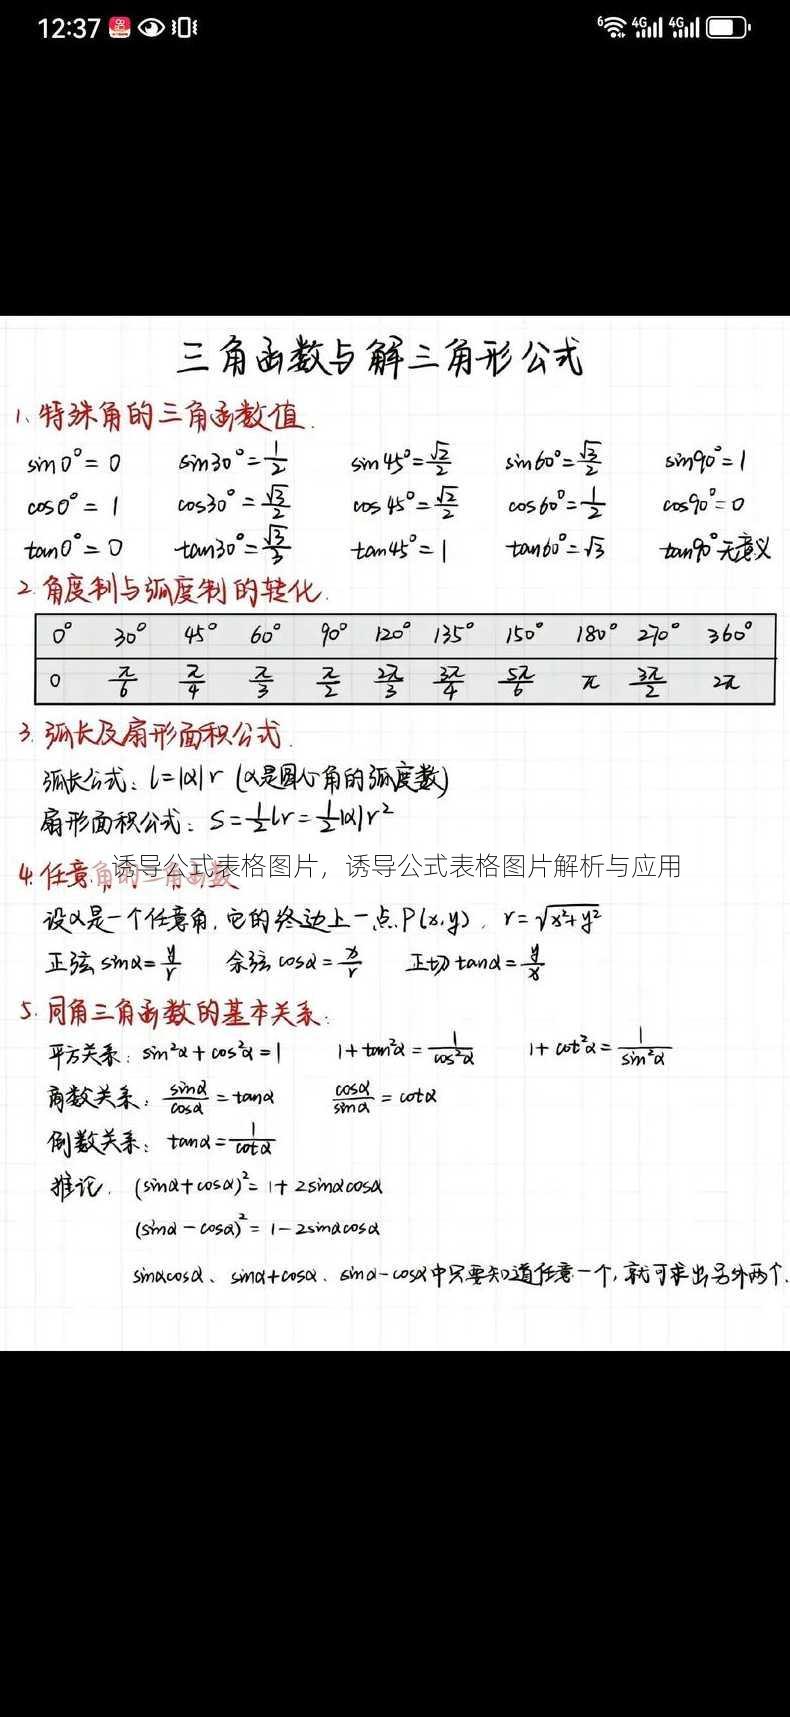 12:37
6 4G 4G
三角函数与解三角形公式
1、特殊角的三角函数值.
sin0°=0 sin30°=1/2 sin45°=√2/2 sin60°=√3/2 sin90°=1
cos0°=1 cos30°=√3/2 cos45°=√2/2 cos60°=1/2 cos90°=0
tan0°=0 tan30°=√3/3 tan45°=1 tan60°=√3 tan90°无意义
2.角度制与弧度制的转化.
0° 30° 45° 60° 90° 120° 135° 150° 180° 270° 360°
0 π/6 π/4 π/3 π/2 2π/3 3π/4 5π/6 π 3π/2 2π
3.弧长及扇形面积公式.
弧长公式：l=|α|r (α是圆心角的弧度数)
扇形面积公式：S=1/2lr=1/2|α|r²
4.任意角的三角函数
诱导公式表格图片，诱导公式表格图片解析与应用
设α是一个任意角，它的终边上一点P(x,y)，r=√x²+y²
正弦sinα=y/r 余弦cosα=x/r 正切tanα=y/x
5.同角三角函数的基本关系：
平方关系：sin²α+cos²α=1 1+tan²α=1/cos²α 1+cot²α=1/sin²α
商数关系：sinα/cosα=tanα cosα/sinα=cotα
倒数关系：tanα=1/cotα
推论.(sinα+cosα)²=1+2sinαcosα
(sinα-cosα)²=1-2sinαcosα
sinαcosα、sinα+cosα、sinα-cosα中只要知道任意一个,就可求出另外两个.